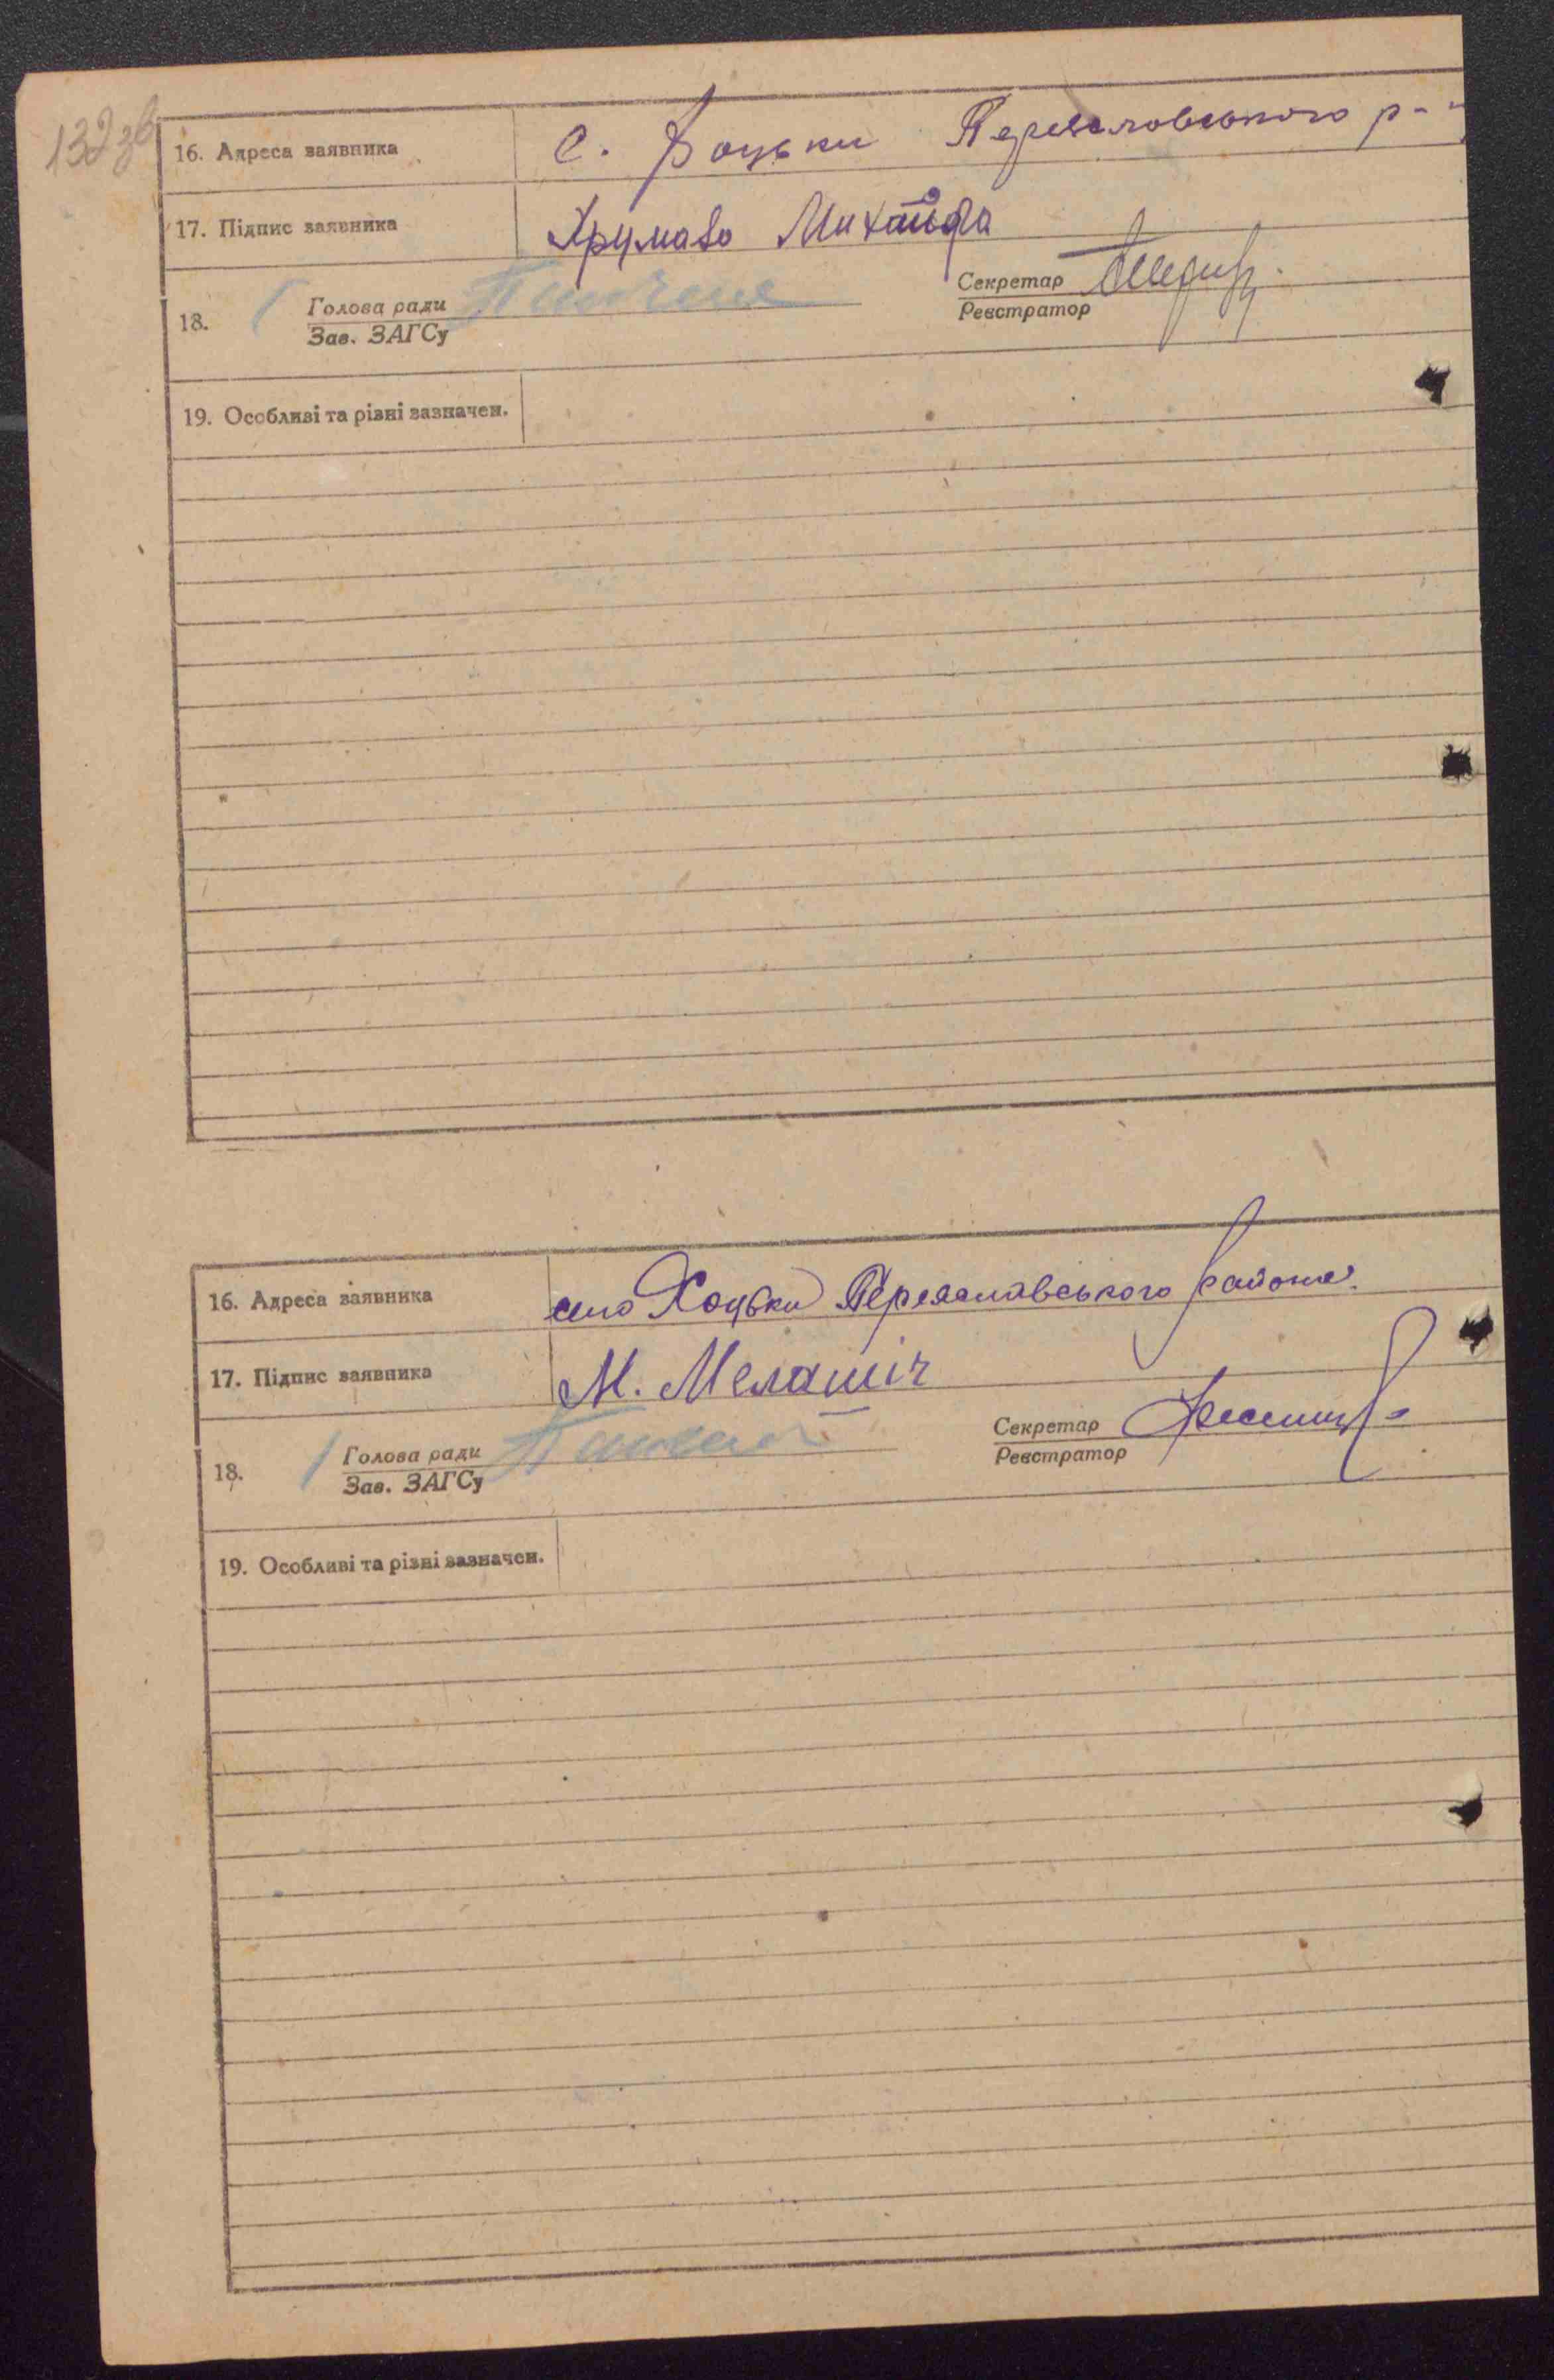 132 зв
16. Адреса заявника с. Хоцьки Переяславського р-
17. Підпис заявника Михайло
18. Голова ради Секретар
Зав. ЗАГСу Реєстратор
19. Особливі та різні зазначен.
16. Адреса заявника село Хоцьки Переяславського района.
17. Підпис заявника М. Мелашіч
18. Голова ради Секретар
Зав. ЗАГСу Реєстратор
19. Особливі та різні зазначен.